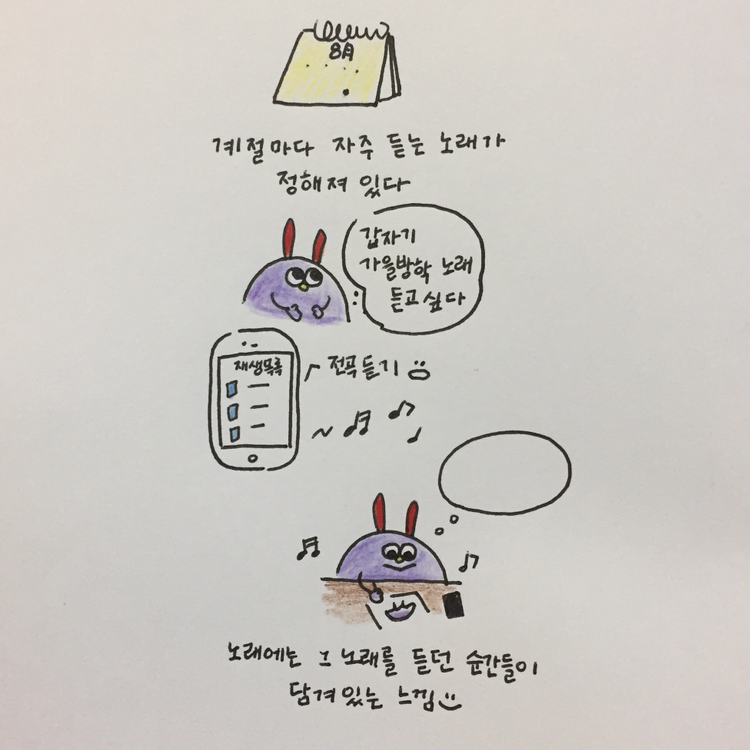 8月
계절마다 자주 듣는 노래가
정해져 있다
갑자기
가을방학 노래
듣고싶다
재생목록
전곡듣기
노래에는 그 노래를 듣던 순간들이
담겨있는 느낌